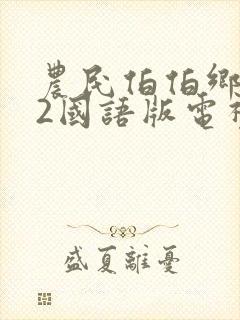 農民伯伯鄉
2國語版電視
盛夏離憂